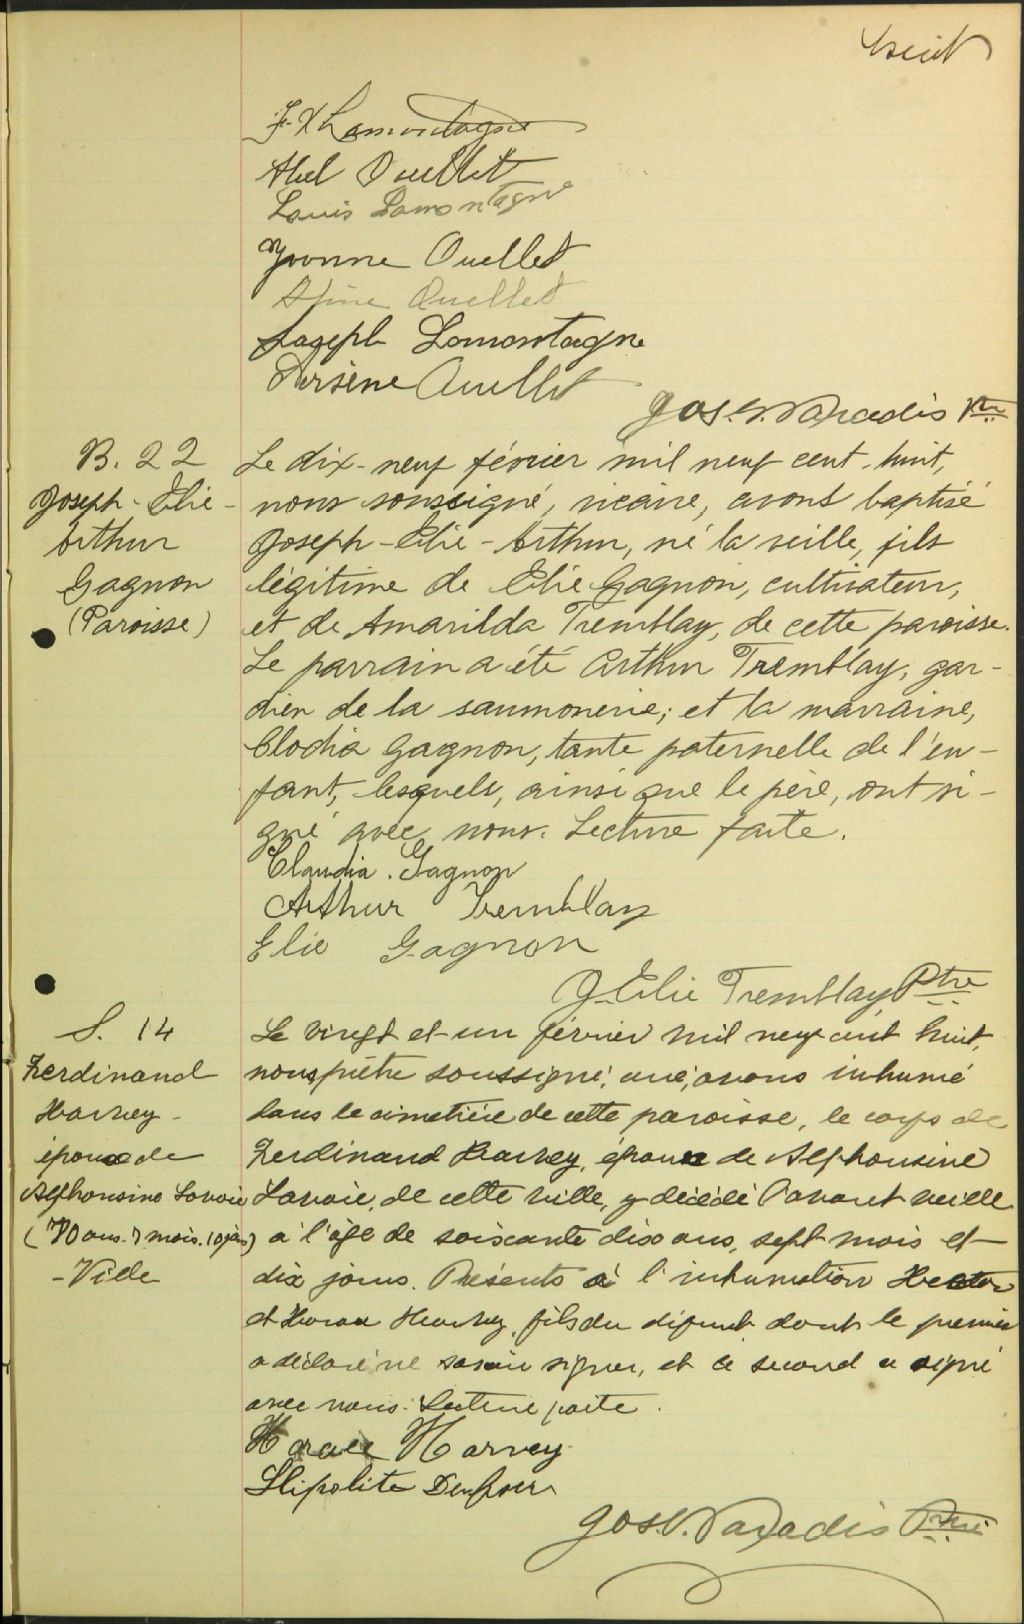 huit
F. X Lamontagne
Abel Ouellet
Louis Lamontagne
Yvonne Ouellet
Ouellet
Joseph Lamontagne
Arsène Ouellet
Jos. V. Paradis Ptre
B. 22
Joseph-Elie-
Arthur
Gagnon
(Paroisse)
Le dix-neuf février mil neuf cent-huit,
nous soussigné, vicaire, avons baptisé
Joseph-Elie-Arthur, né la veille, fils
légitime de Elie Gagnon, cultivateur,
et de Amarilda Tremblay, de cette paroisse.
Le parrain a été Arthur Tremblay, gar-
dien de la saumonerie; et la marraine,
Clodia Gagnon, tante paternelle de l'en-
fant, lesquels, ainsi que le père, ont si-
gné avec nous. Lecture faite.
Claudia. Gagnon
Arthur Tremblay
Elie Gagnon
J. Elie Tremblay Ptre
S. 14
Ferdinand
Harvey
époux de
Alphonsine Lavoie
(70 ans. 7 mois. 10 jrs)
-Ville
Le vingt et un février mil neuf cent huit,
nous prêtre soussigné, curé, avons inhumé
dans le cimetière de cette paroisse, le corps de
Ferdinand Harvey, époux de Alphonsine
Lavoie, de cette ville, y décédé l'avant veille
a l'âge de soixante dix ans, sept mois et
dix jours. Présents à l'inhumation Hector
et Horace Harvey, fils du défunt dont le premier
a déclaré ne savoir signer, et le second a signé
avec nous. Lecture faite.
Horace Harvey
Hipolite Dufour
Jos. V. Paradis Ptre